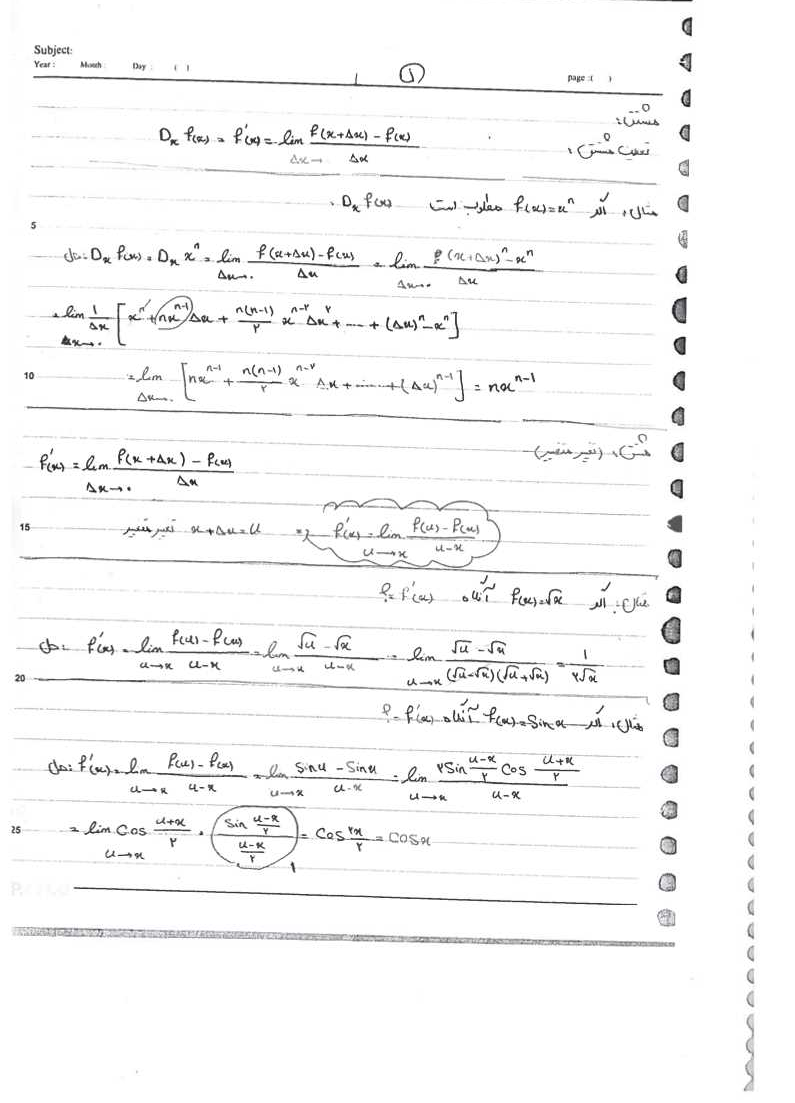 Subject:
Year : Month : Day : ( )
۱
page :( )
مشتق:
تعریف مشتق:
Dₓ f(x) = f′(x) = lim Δx→ (f(x+Δx) - f(x)) / Δx
مثال: اگر f(x)=xⁿ مطلوب است Dₓ f(x).
5
حل: Dₓ f(x) = Dₓ xⁿ = lim Δx→۰ (f(x+Δx) - f(x)) / Δx = lim Δx→۰ ((x+Δx)ⁿ - xⁿ) / Δx
= lim Δx→۰ 1/Δx [xⁿ + nxⁿ⁻¹ Δx + (n(n-1)/۲) xⁿ⁻² Δx² + ---- + (Δx)ⁿ - xⁿ]
10
= lim Δx→۰ [nxⁿ⁻¹ + (n(n-1)/۲) xⁿ⁻² Δx + ...... + (Δx)ⁿ⁻¹] = nxⁿ⁻¹
مشتق: (تغییر متغیر)
f′(x) = lim Δx→۰ (f(x+Δx) - f(x)) / Δx
15
تغییر متغیر x+Δx=u ⇒ f′(x) = lim u→x (f(u) - f(x)) / (u-x)
مثال: اگر f(x)=√x آنگاه f′(x) =؟
حل: f′(x) = lim u→x (f(u) - f(x)) / (u-x) = lim u→x (√u - √x) / (u-x) = lim u→x (√u - √x) / ((√u-√x)(√u+√x)) = 1/(۲√x)
20
مثال: اگر f(x)=Sinx آنگاه f′(x) =؟
حل: f′(x) = lim u→x (f(u) - f(x)) / (u-x) = lim u→x (Sinu - Sinx) / (u-x) = lim u→x (۲Sin (u-x)/۲ Cos (u+x)/۲) / (u-x)
25
= lim u→x Cos (u+x)/۲ · (Sin (u-x)/۲) / ((u-x)/۲) = Cos ۲x/۲ = Cosx
۱